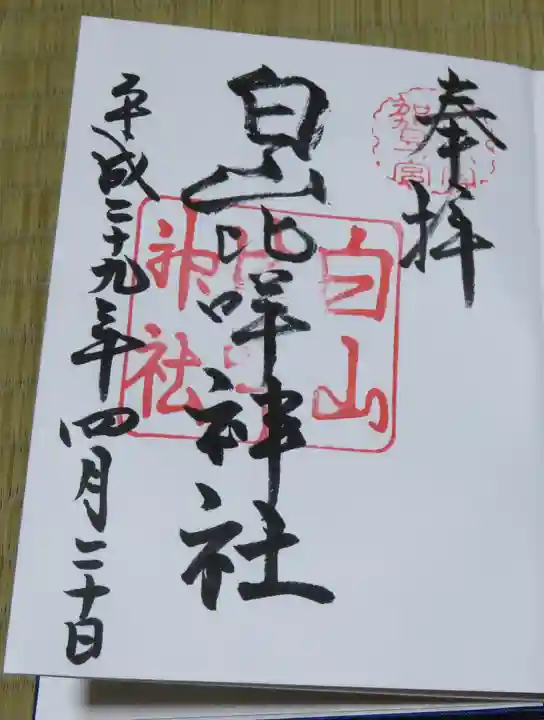 奉拝
加賀一宮
白山比咩神社
白山
神社
平成二十九年四月二十日